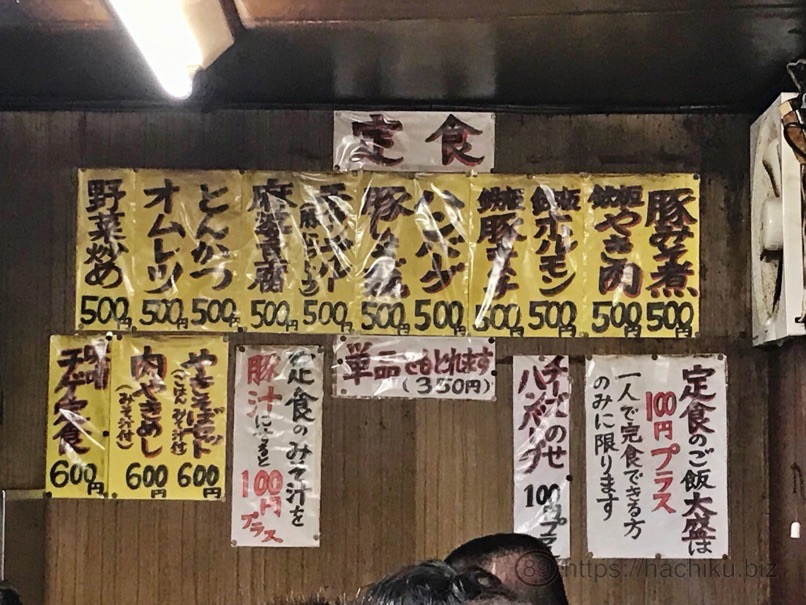 定食
豚キムチ煮 500円
鉄板やき肉 500円
鉄板ホルモン 500円
鉄板豚キムチ 500円
ハンバーグ 500円
500円
500円
麻婆豆腐 500円
とんかつ 500円
オムレツ 500円
野菜炒め 500円
定食のご飯大盛は
100円プラス
一人で完食できる方
のみに限ります
チーズのせ
ハンバーグ 100円プラス
単品でもとれます
(350円)
定食のみそ汁を
豚汁にすると
100円プラス
やきそばセット
(ごはん みそ汁付)
600円
肉やきめし
(みそ汁付)
600円
チゲ定食
600円
89 https://hachiku.biz